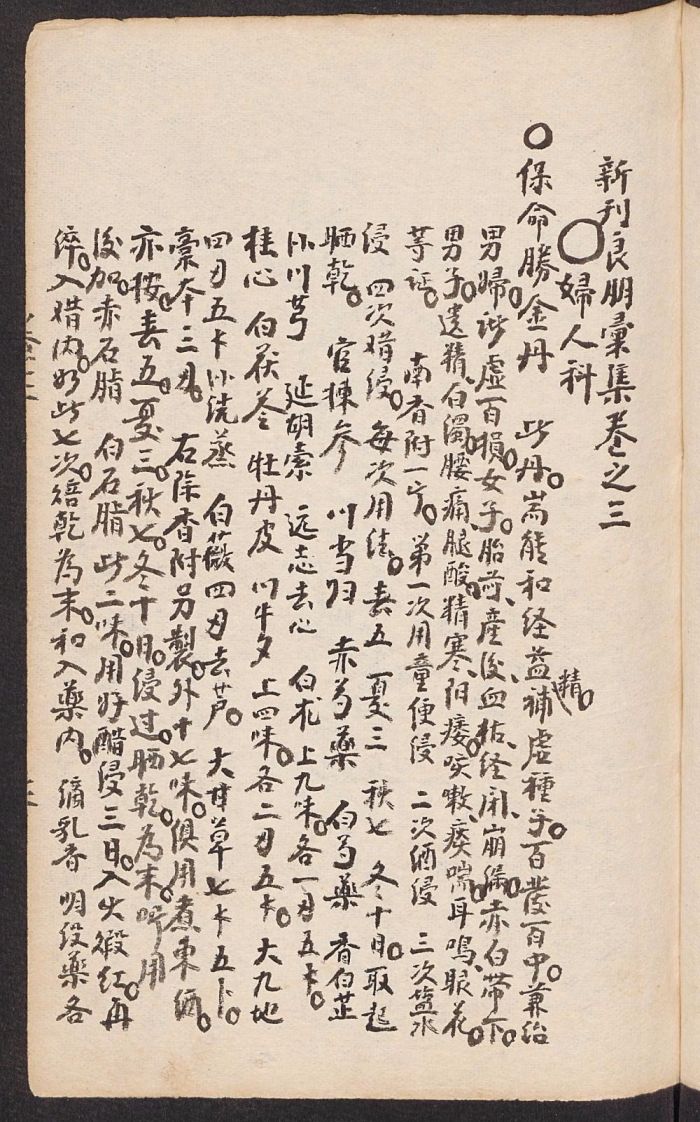 新刊良朋彙集卷之三
○婦人科
○保命勝金丹 此丹。耑能和经益補精。虛種子。百發百中。兼治
男婦诸虛百損。女子。胎前、產後、血枯、经闭、崩漏。赤白带下。
男子。遗精、白濁、腰痛、腿酸、精寒、阳痿、咳嗽、痰喘、耳鳴、眼花。
等证。 南香附一斤。第一次用童便浸 二次酒浸 三次盐水
浸 四次醋浸。每次用法。春五 夏三 秋七 冬十日。取起
晒乾。 官揀参 川当归 赤芍藥 白芍藥 香白芷
小川芎 延胡索 远志去心 白朮上九味。各一两五卜。
桂心 白茯苓 牡丹皮 川牛夕上四味。各二两五卜。大九地
四两五卜小洗蒸 白薇四两去芦。 大甘草七卜五卜。
藁本三两。 右除香附另製。外十七味。俱用煮東酒。
亦按。春五。夏三。秋七。冬十日。浸过。晒乾。為末。听用
後加。赤石脂 白石脂此二味。用好醋浸三日。入火煅红。再
淬。入醋内。如此七次。焙乾為末。和入藥内。 滴乳香 明没藥各
卷三
三